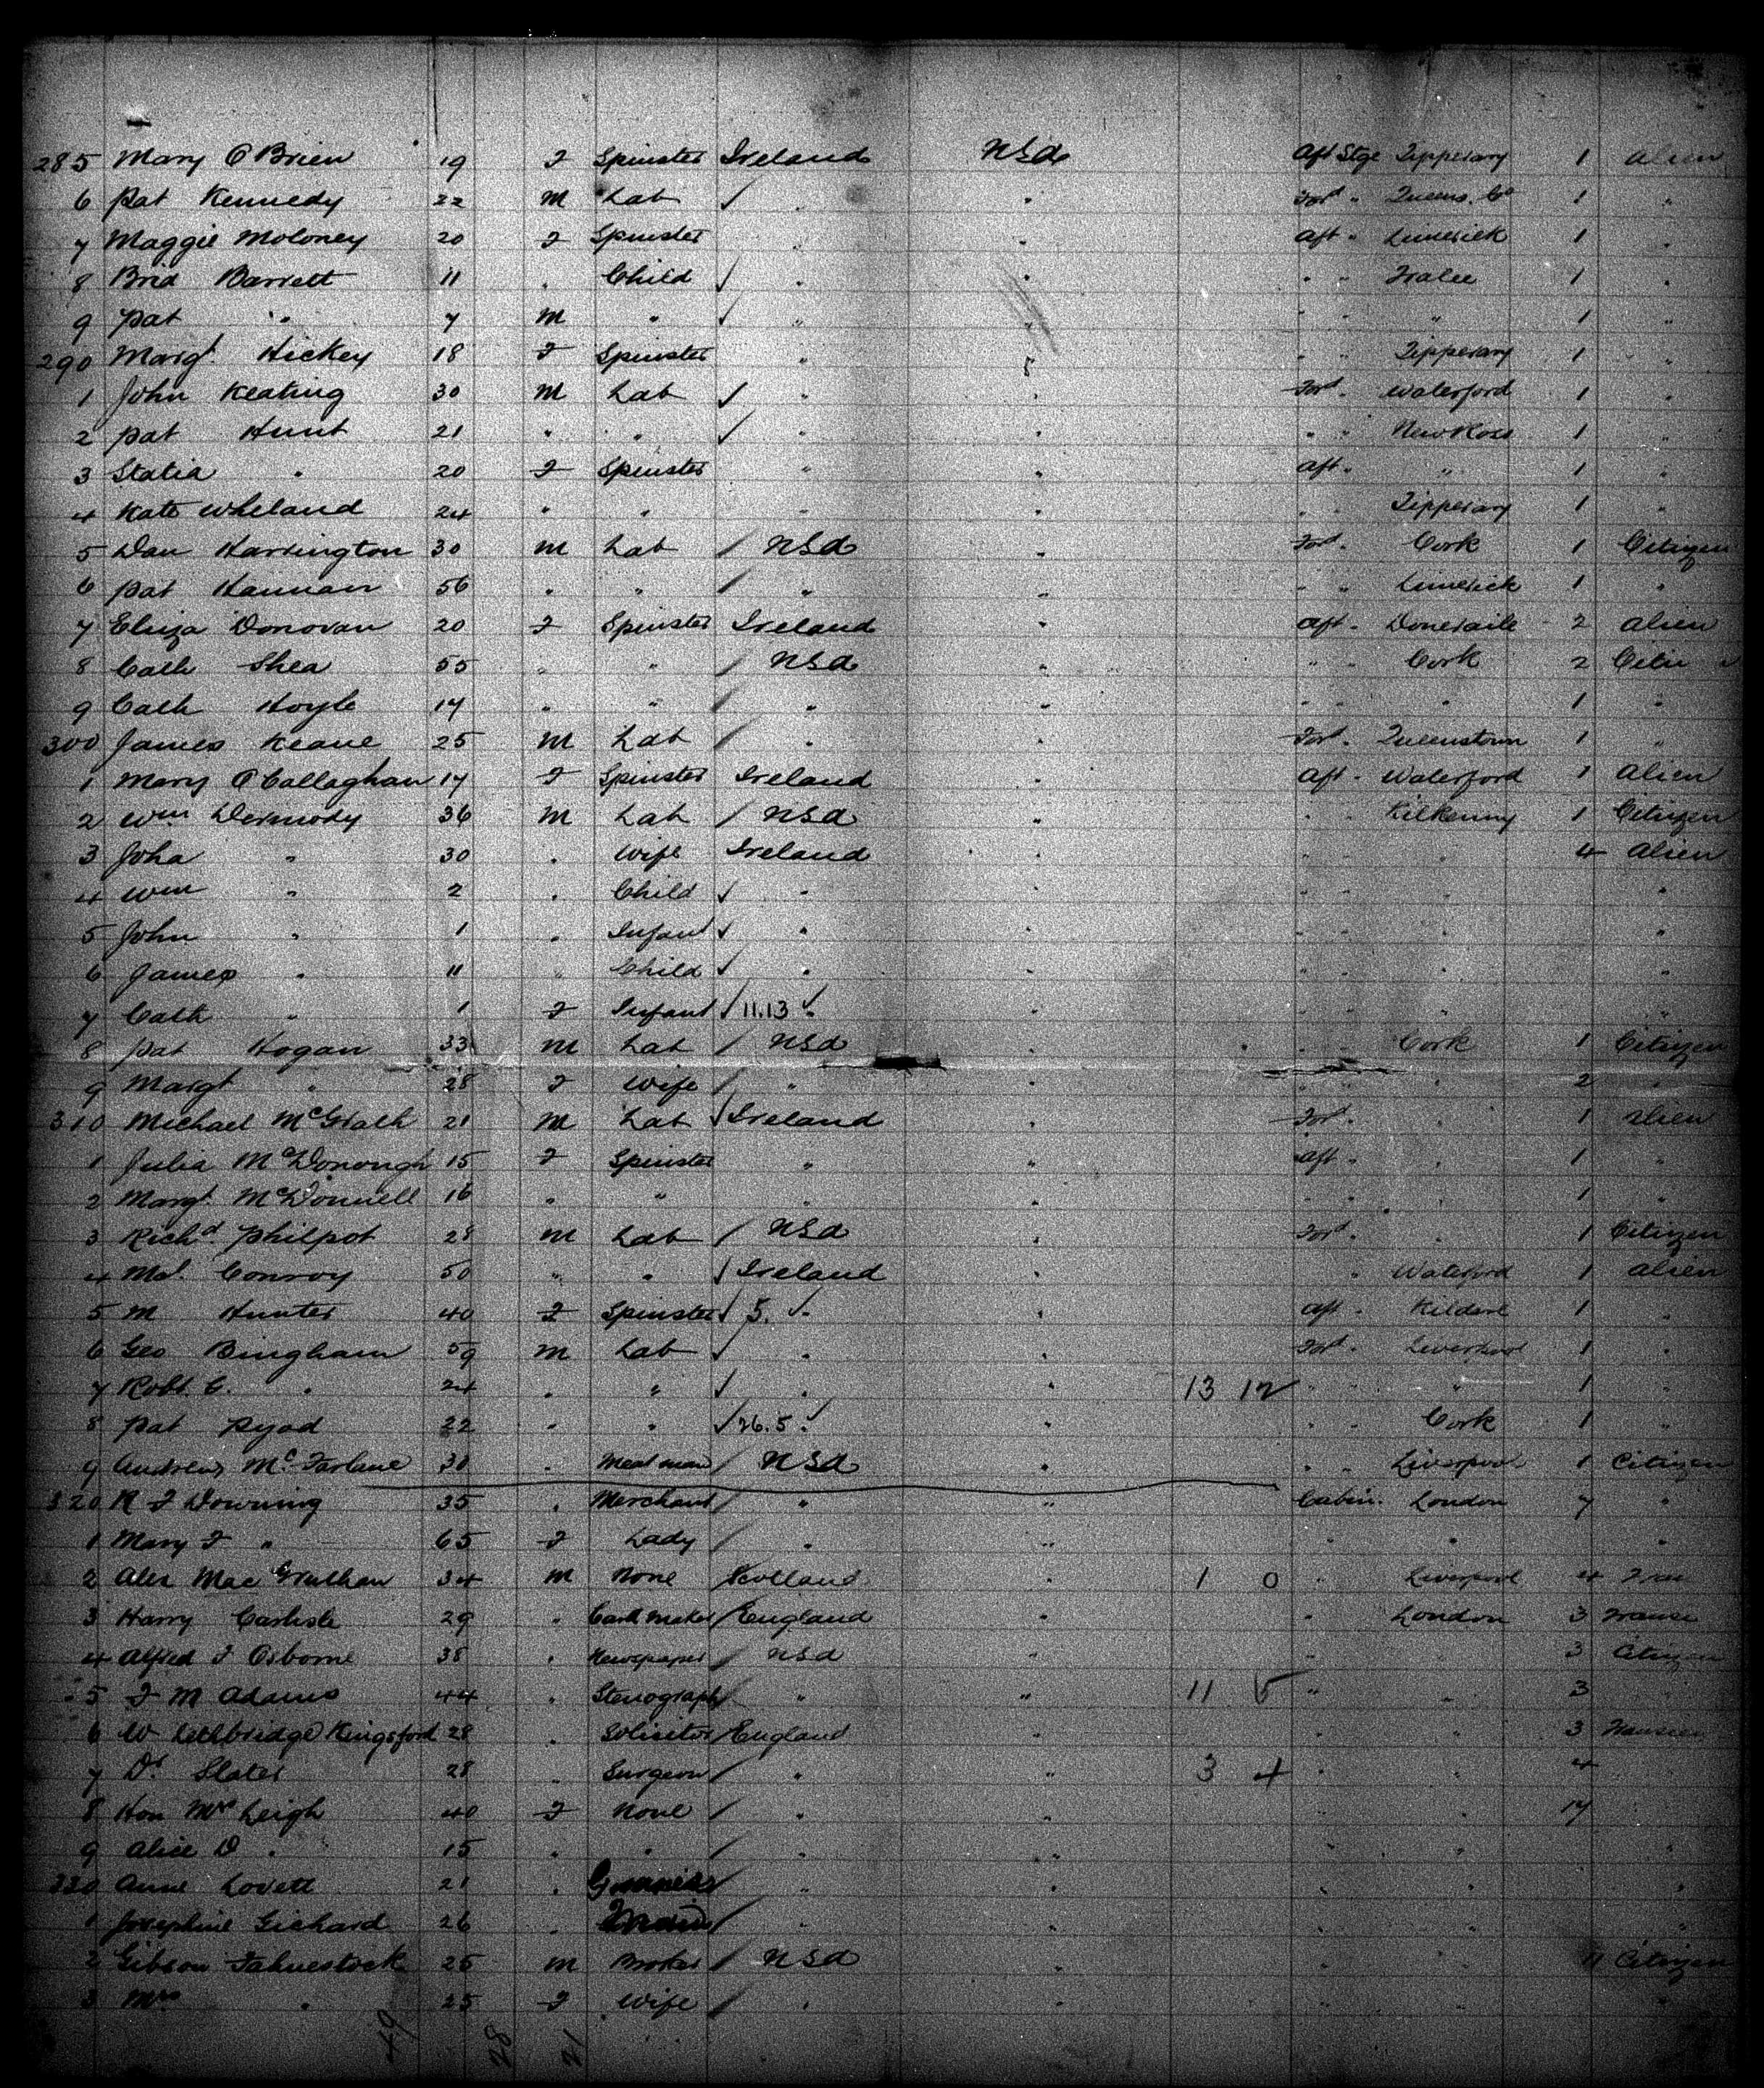 285 Mary O'Brien 19 F Spinster Ireland USA Aft Stge Tipperary 1 Alien
6 Pat Kennedy 22 M Lab ✓ " " Ford " Queens Co 1 "
7 Maggie Moloney 20 F Spinster " " Aft " Limerick 1 "
8 Brid Barrett 11 " Child ✓ " " " " Tralee 1 "
9 Pat " 7 M " ✓ " " " " " 1 "
290 Margt Hickey 18 F Spinster " " " Tipperary 1 "
1 John Keating 30 M Lab ✓ " " Ford " Waterford 1 "
2 Pat Hunt 21 " " ✓ " " " " New Ross 1 "
3 Statia " 20 F Spinster " " Aft " " 1 "
4 Kate Wheland 24 " " " " " " Tipperary 1 "
5 Dan Harrington 30 M Lab / USA " Ford " Cork 1 Citizen
6 Pat Hannan 56 " " / " " " " Limerick 1 "
7 Eliza Donovan 20 F Spinster Ireland " Aft " Doneraile 2 Alien
8 Cath Shea 55 " " / USA " " " Cork 2
9 Cath Hoyle 17 " " / " " " " " 1 "
300 James Keane 25 M Lab / " " Ford " Queenstown 1 "
1 Mary O'Callaghan 17 F Spinster Ireland " Aft " Waterford 1 Alien
2 Wm Dermody 36 M Lab / USA " " " Kilkenny 1 Citizen
3 Joha " 30 " Wife Ireland " " " 4 Alien
4 Wm " 2 " Child ✓ " " " " " "
5 John " 1 " Infant ✓ " " " " " "
6 James " 11 " Child ✓ " " " " " "
7 Cath " 1 F Infant ✓ 11.13 ✓ " " " " " "
8 Pat Hogan 33 M Lab / USA " " " Cork 1 Citizen
9 Margt " 28 F Wife / " " " " " 2 "
310 Michael McGrath 21 M Lab ✓ Ireland " Ford " " 1 Alien
1 Julia McDonough 15 F Spinster " " Aft " " 1 "
2 Margt McDonnell 16 " " " " " " " 1 "
3 Richd Philpot 28 M Lab / USA " Ford " " 1 Citizen
4 Conroy 50 " " ✓ Ireland " " Waterford 1 Alien
5 M Hunter 40 F Spinster ✓ 5. ✓ " " Aft " Kildare 1 "
6 Geo Bingham 59 M Lab ✓ " " Ford " Liverpool 1 "
7 Robt C. " 24 " " ✓ " " 13 12 " " " 1 "
8 Pat 22 " " ✓ 26.5 ✓ " " " " Cork 1 "
9 Andrew McFarlane 30 " Meat man / USA " " " Liverpool 1 Citizen
320 R F Downing 35 " Merchant / " " Cabin " London 7 "
1 Mary F " 65 F Lady / " " " " "
2 Alex Mac 34 M None / Holland 1 0 " Liverpool 4
3 Harry Carlisle 29 " / England " " London 3
4 Alfred F Osborne 38 " Newspaper / USA " " " 3 Citizen
5 F M Adams 44 " Stenograph / " " 11 5 " " 3
6 W Lethbridge Kingsford 28 " Solicitor / England " " " 3
7 Dr Slater 28 " Surgeon / " " 3 4 " " 4
8 Hon Mrs Leigh 40 F None / " " " " 17
9 Alice D " 15 " " / " " " " "
330 Anne Lovett 21 " / " " " " "
1 Josephine Gichard 26 " / " " " " "
2 Gibson Fahnestock 25 M Broker / USA " " " 11 Citizen
3 Mrs " 25 F Wife / " " " " "
49 28 21